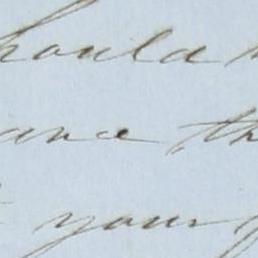 should
ance th
your